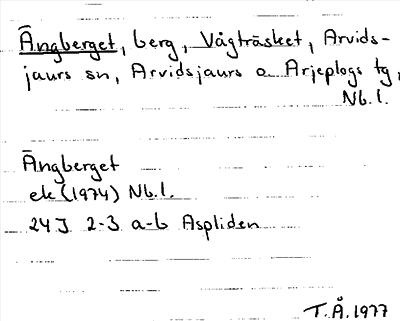 Ängberget, berg, Vågträsket, Arvids-
jaurs sn, Arvidsjaurs o. Arjeplogs tg,
Nb.l.
Ängberget
ek (1974) Nb.l.
24J 2-3 a-b Aspliden
T.Å. 1977